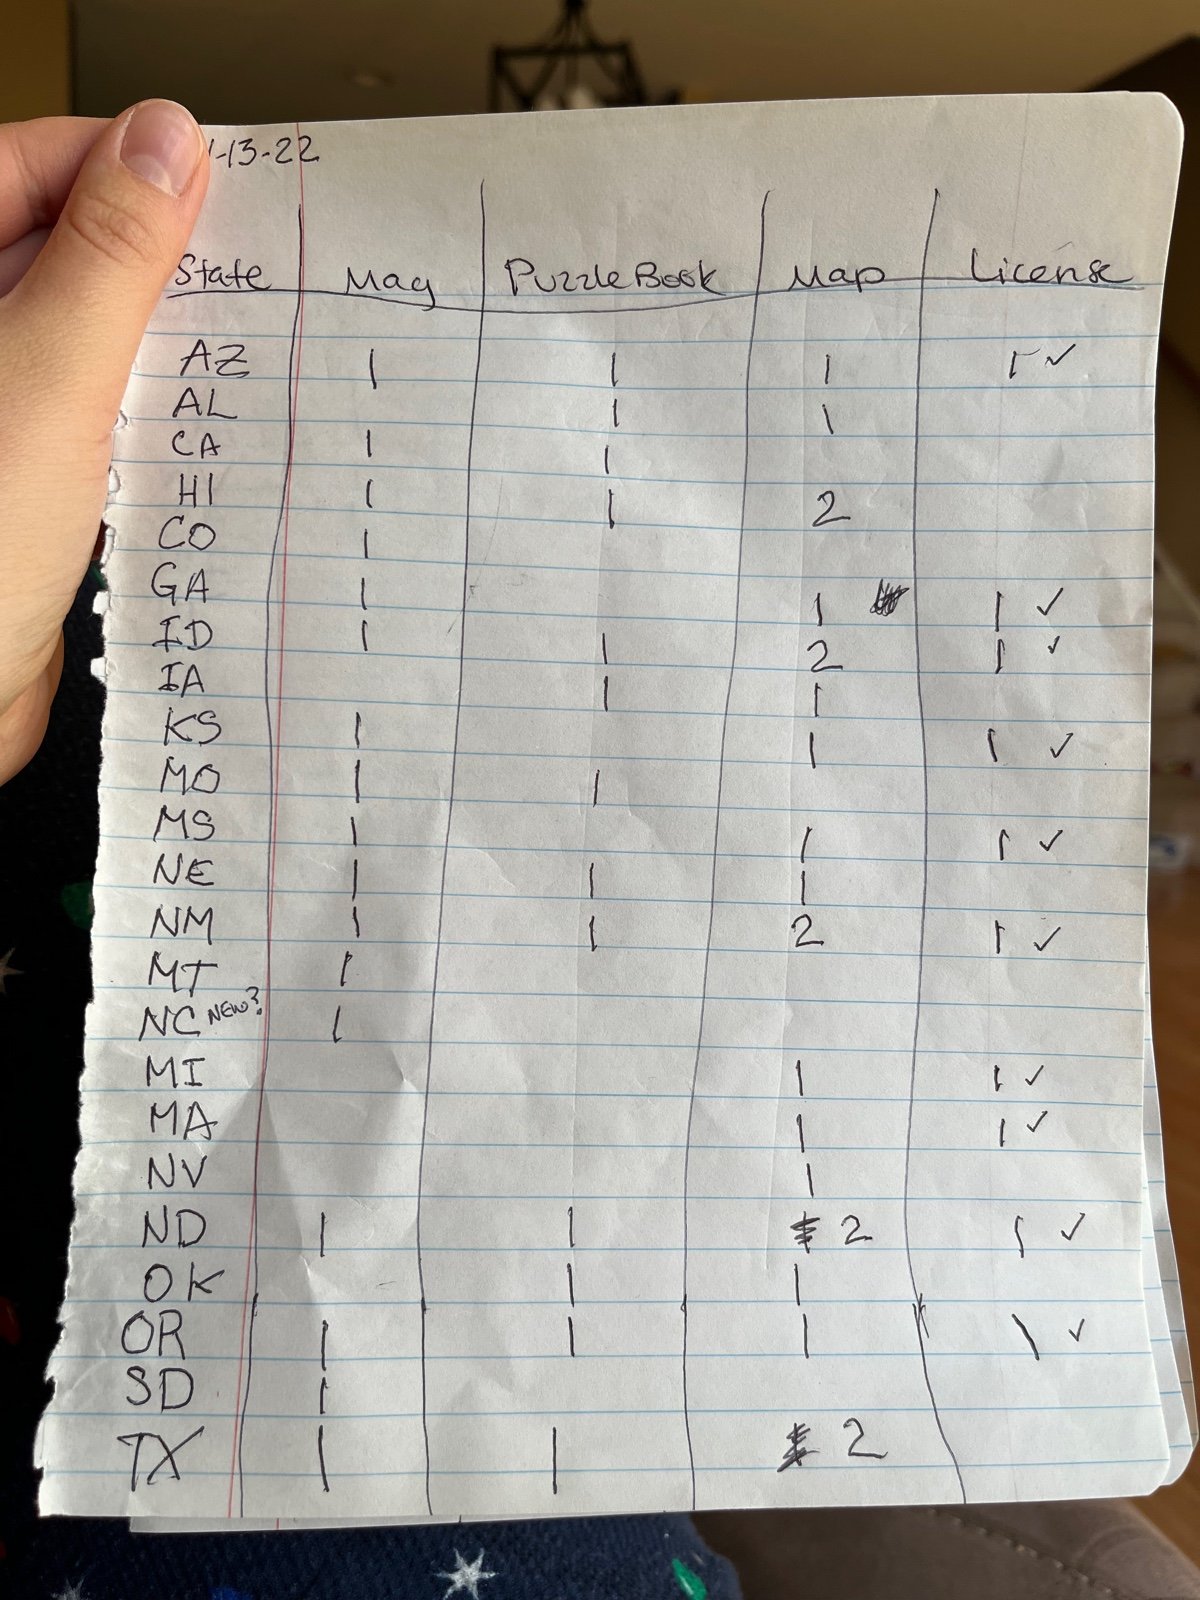 1-13-22
State Mag Puzzle Book Map License
AZ 1 1 1 1 ✓
AL 1 1
CA 1 1
HI 1 1 2
CO 1
GA 1 1 1 ✓
ID 1 1 2 1 ✓
IA 1 1
KS 1 1 1 ✓
MO 1 1
MS 1 1 1 ✓
NE 1 1 1
NM 1 1 2 1 ✓
MT 1
NC NEW? 1
MI 1 1 ✓
MA 1 1 ✓
NV 1
ND 1 1 2 1 ✓
OK 1 1
OR 1 1 1 1 ✓
SD 1
TX 1 1 2